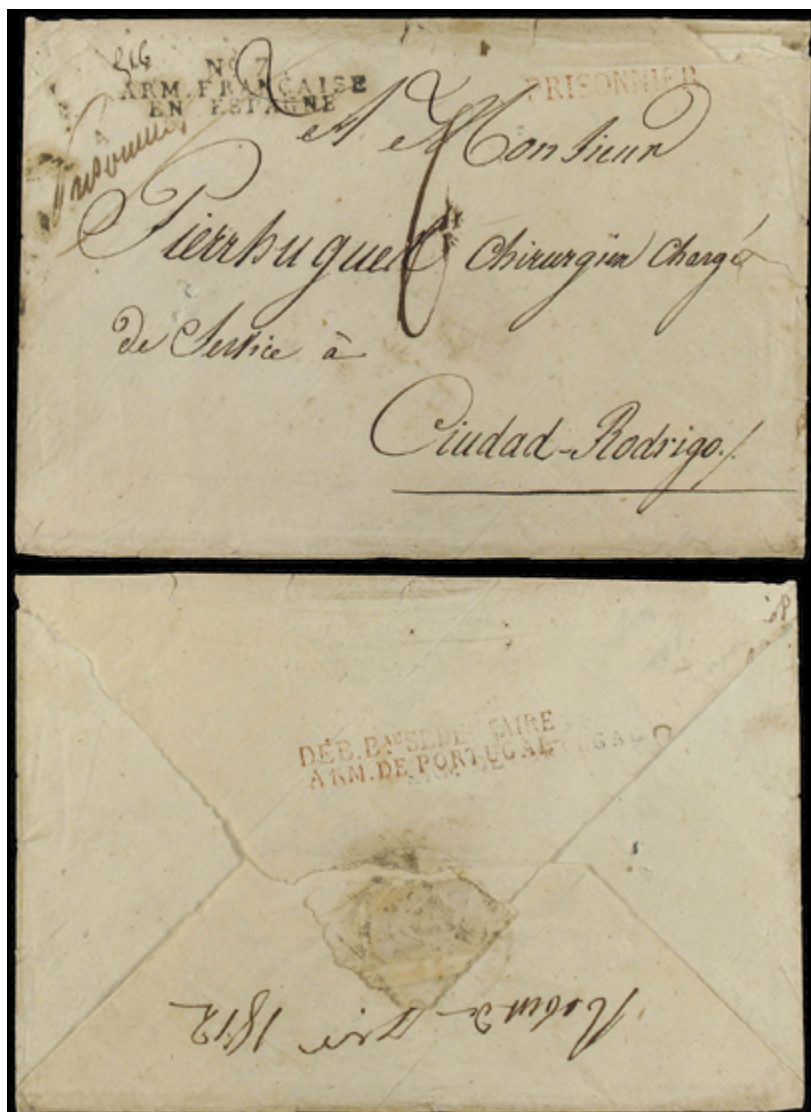 516
N° 7
ARM. FRANÇAISE
EN ESPAGNE
PRISONNIER
Prisonnier
A Monsieur
Pierrhugues Chirurgien Chargé
de Service à
Ciudad-Rodrigo
DÉB. BAU
ARM. DE PORTUGAL
1812